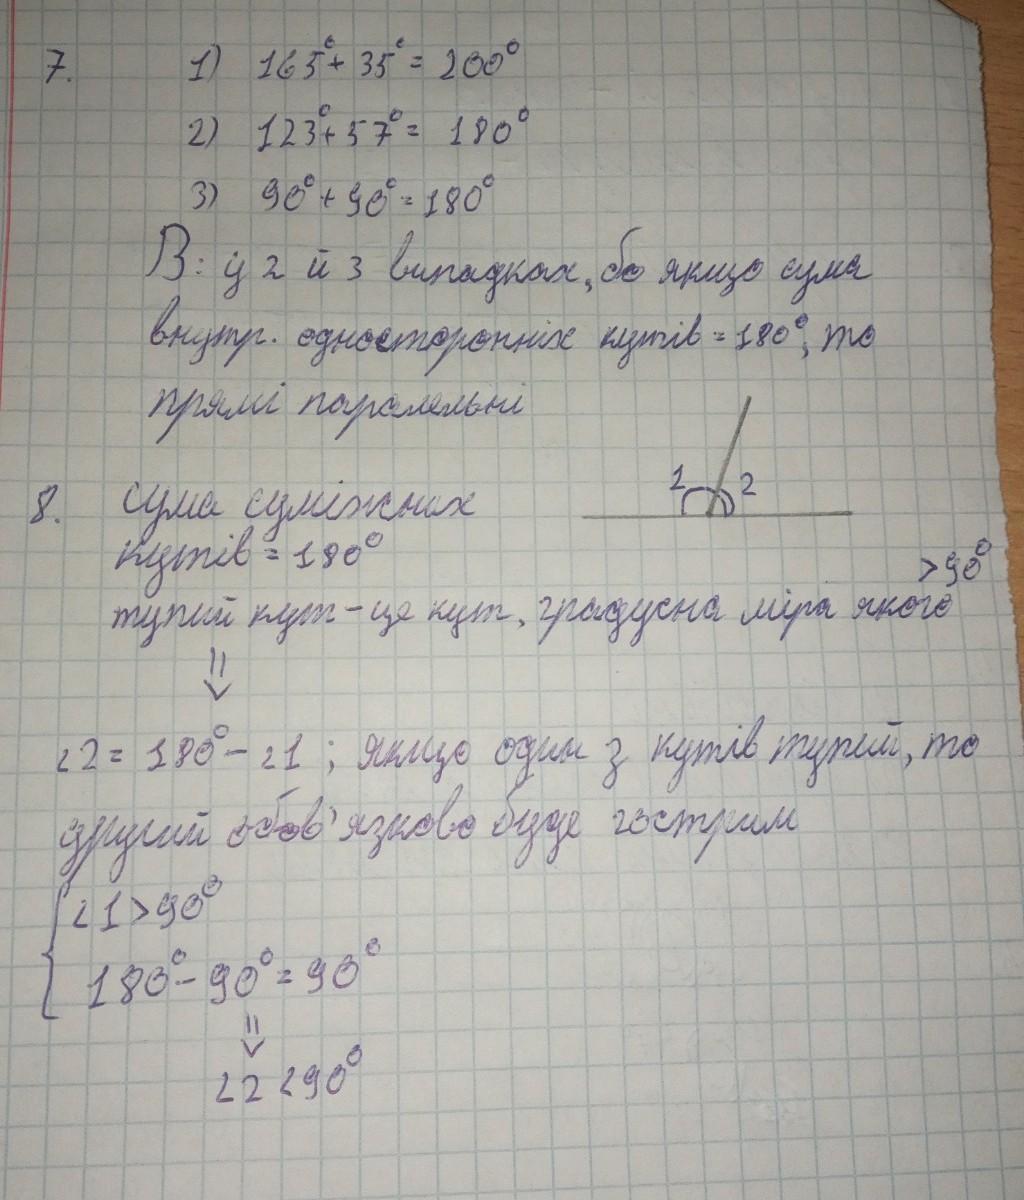 7. 1) 165° + 35° = 200°
2) 123° + 57° = 180°
3) 90° + 90° = 180°
В: у 2 й 3 випадках, бо якщо сума
внутр. односторонніх кутів = 180°, то
прямі паралельні
1 2
8. сума суміжних
кутів = 180°
>90°
тупий кут - це кут, градусна міра якого
⇓
∠2 = 180° - ∠1 ; якщо один з кутів тупий, то
другий обов'язково буде гострим
∠1 > 90°
180° - 90° = 90°
⇓
∠2 < 90°